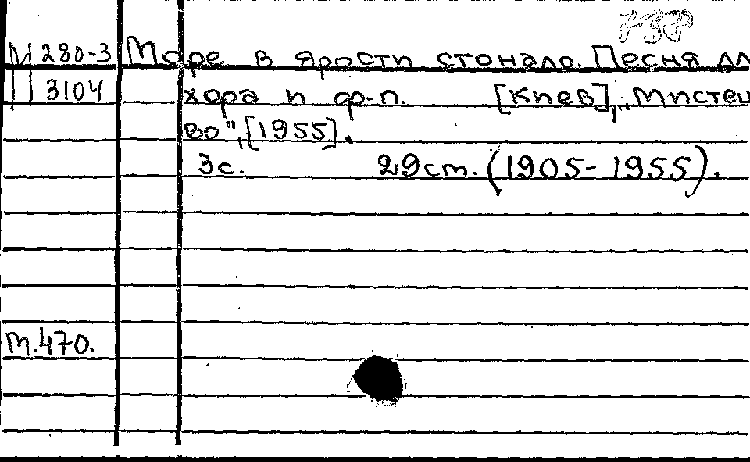 М 280-3 Море в ярости стонало. Песня дл
3104 хора и ф-п. [Киев], „Мистец
во", [1955].
3с. 29см. (1905-1955).
м.470.